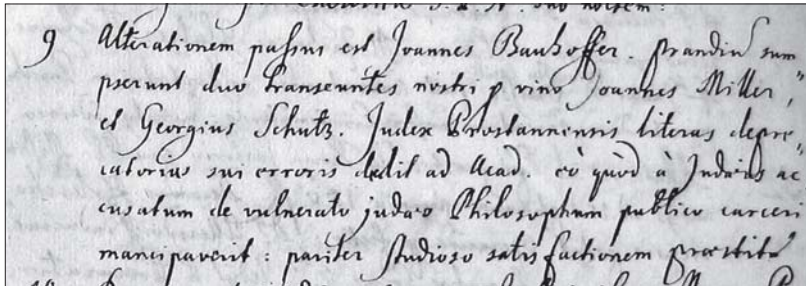 9 Alterationem passus est Joannes Bauhoffer. prandiū sum
pserunt duo transeuntes nostri p vino Joannes Miller,
et Georgius Schutz. Judex Prostannensis literas depre„
catorias sui erroris dedit ad Acad. eò quòd à Judaeis ac
cusatum de vulnerato judaeo Philosophum publico carceri
mancipaverit: pariter studioso satisfactionem praestitit